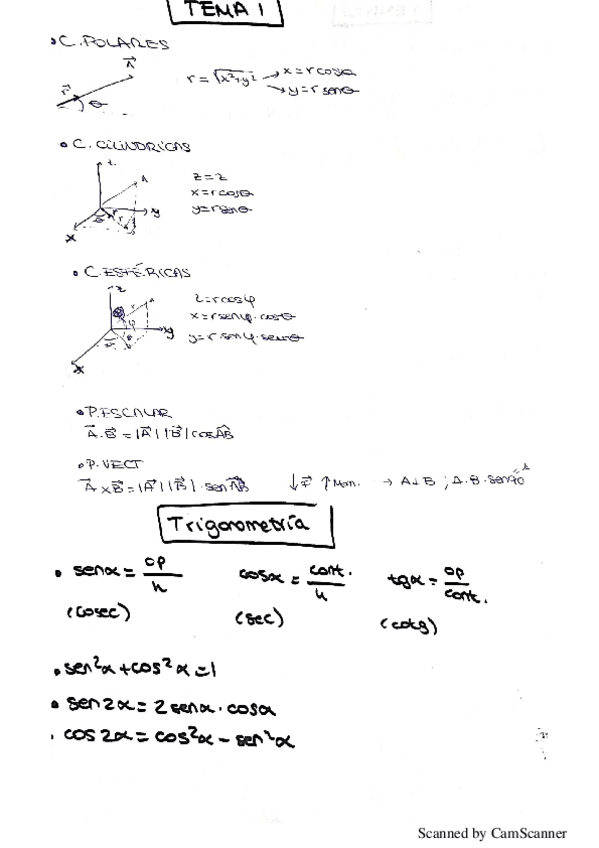 TEMA 1
• C. POLARES
A
r θ
r = √x²+y² → x = r cosθ
→ y = r senθ
• C. CILÍNDRICAS
z
A
xy
x
z = z
x = r cosθ
y = r senθ
• C. ESFÉRICAS
z
r
xy
x
z = r cosφ
x = r senφ · cosθ
y = r · senφ · senθ
• P. ESCALAR
A · B = |A| |B| cos AB
• P. VECT
A x B = |A| |B| · sen AB ↓F ↑Mom. → A⊥B ; A · B · sen90 1
Trigonometría
• senα = op/h cosα = cont./h tgα = op/cont.
(cosec) (sec) (cotg)
• sen²α + cos²α = 1
• sen2α = 2 senα · cosα
· cos2α = cos²α - sen²α
Scanned by CamScanner